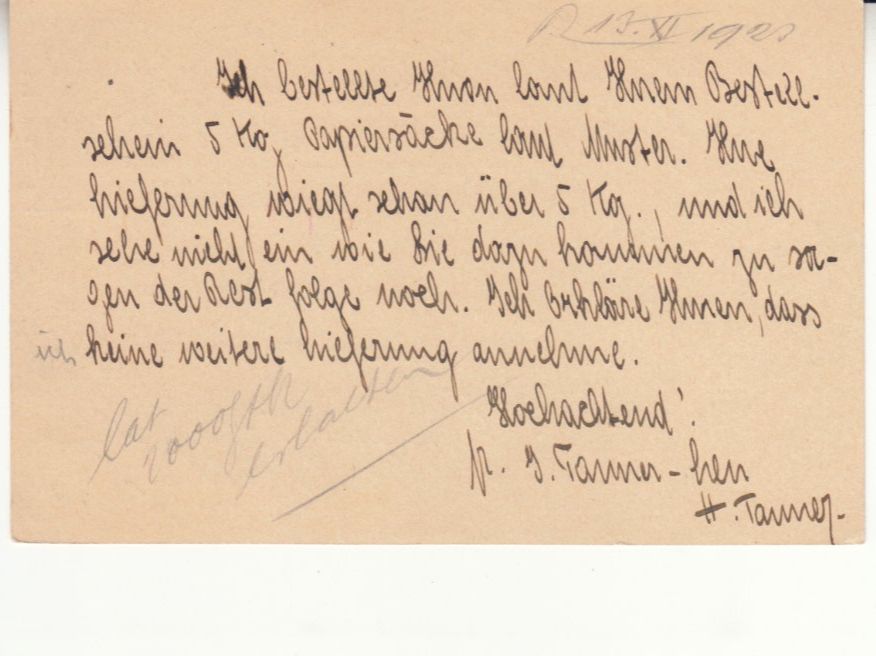 17.XI 1921
Ich bestellte Ihnen laut Ihrem Bestell-
schein 5 Kg Papiersäcke laut Muster. Ihre
Lieferung wiegt schon über 5 Kg., und ich
sehe nicht ein wie Sie dazu kommen zu sa-
gen der Rest folge noch. Ich erkläre Ihnen, dass
ich keine weitere Lieferung annehme.
Hochachtend!
p. J. Tanner-
H. Tanner.
hat
1000 Stk
erhalten